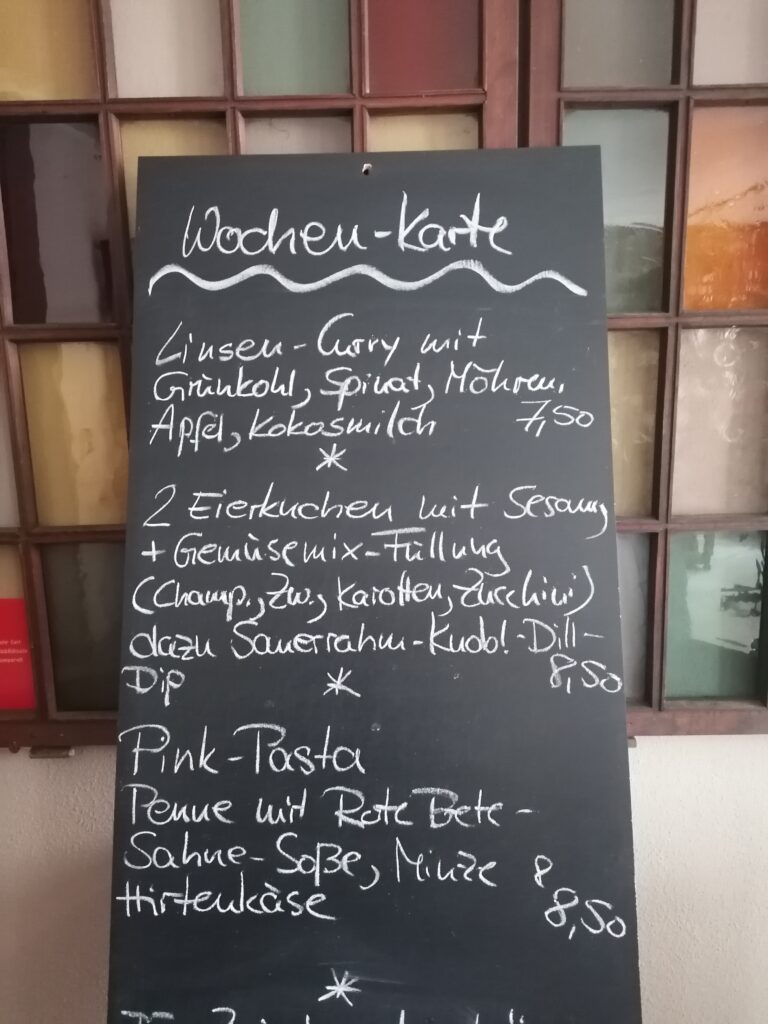 Wochen-Karte
Linsen-Curry mit
Grünkohl, Spinat, Möhren,
Apfel, Kokosmilch 7,50
*
2 Eierkuchen mit Sesam,
+ Gemüsemix-Füllung
(Champ., Zw., Karotten, Zucchini)
dazu Sauerrahm-Knobl-Dill-
Dip * 8,50
Pink-Pasta
Penne mit Rote Bete-
Sahne-Soße, Minze 8
Hirtenkäse 8,50
*